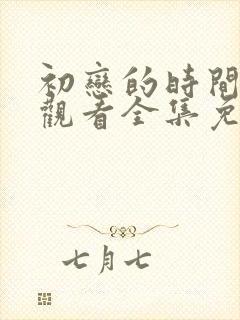 初戀的時間
觀看全集免
七月七